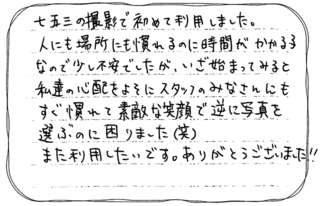 七五三の撮影で初めて利用しました。
人にも場所にも慣れるのに時間がかかる
なので少し不安でしたが、いざ始まってみると
私達の心配をよそにスタッフのみなさんにも
すぐ慣れて素敵な笑顔で逆に写真を
選ぶのに困りました(笑)
また利用したいです。ありがとうございました!!